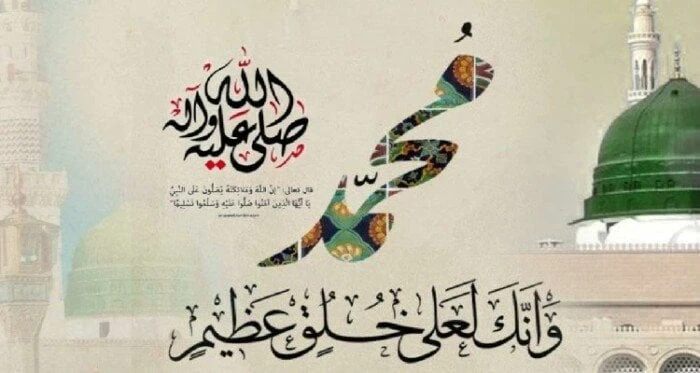 مُحَمَّد
صلى الله عليه وآله
قال تعالى: "إِنَّ اللَّهَ وَمَلَائِكَتَهُ يُصَلُّونَ عَلَى النَّبِيِّ
يَا أَيُّهَا الَّذِينَ آمَنُوا صَلُّوا عَلَيْهِ وَسَلِّمُوا تَسْلِيمًا"
وَانَّكَ لَعَلى خُلُقٍ عَظِيمٍ